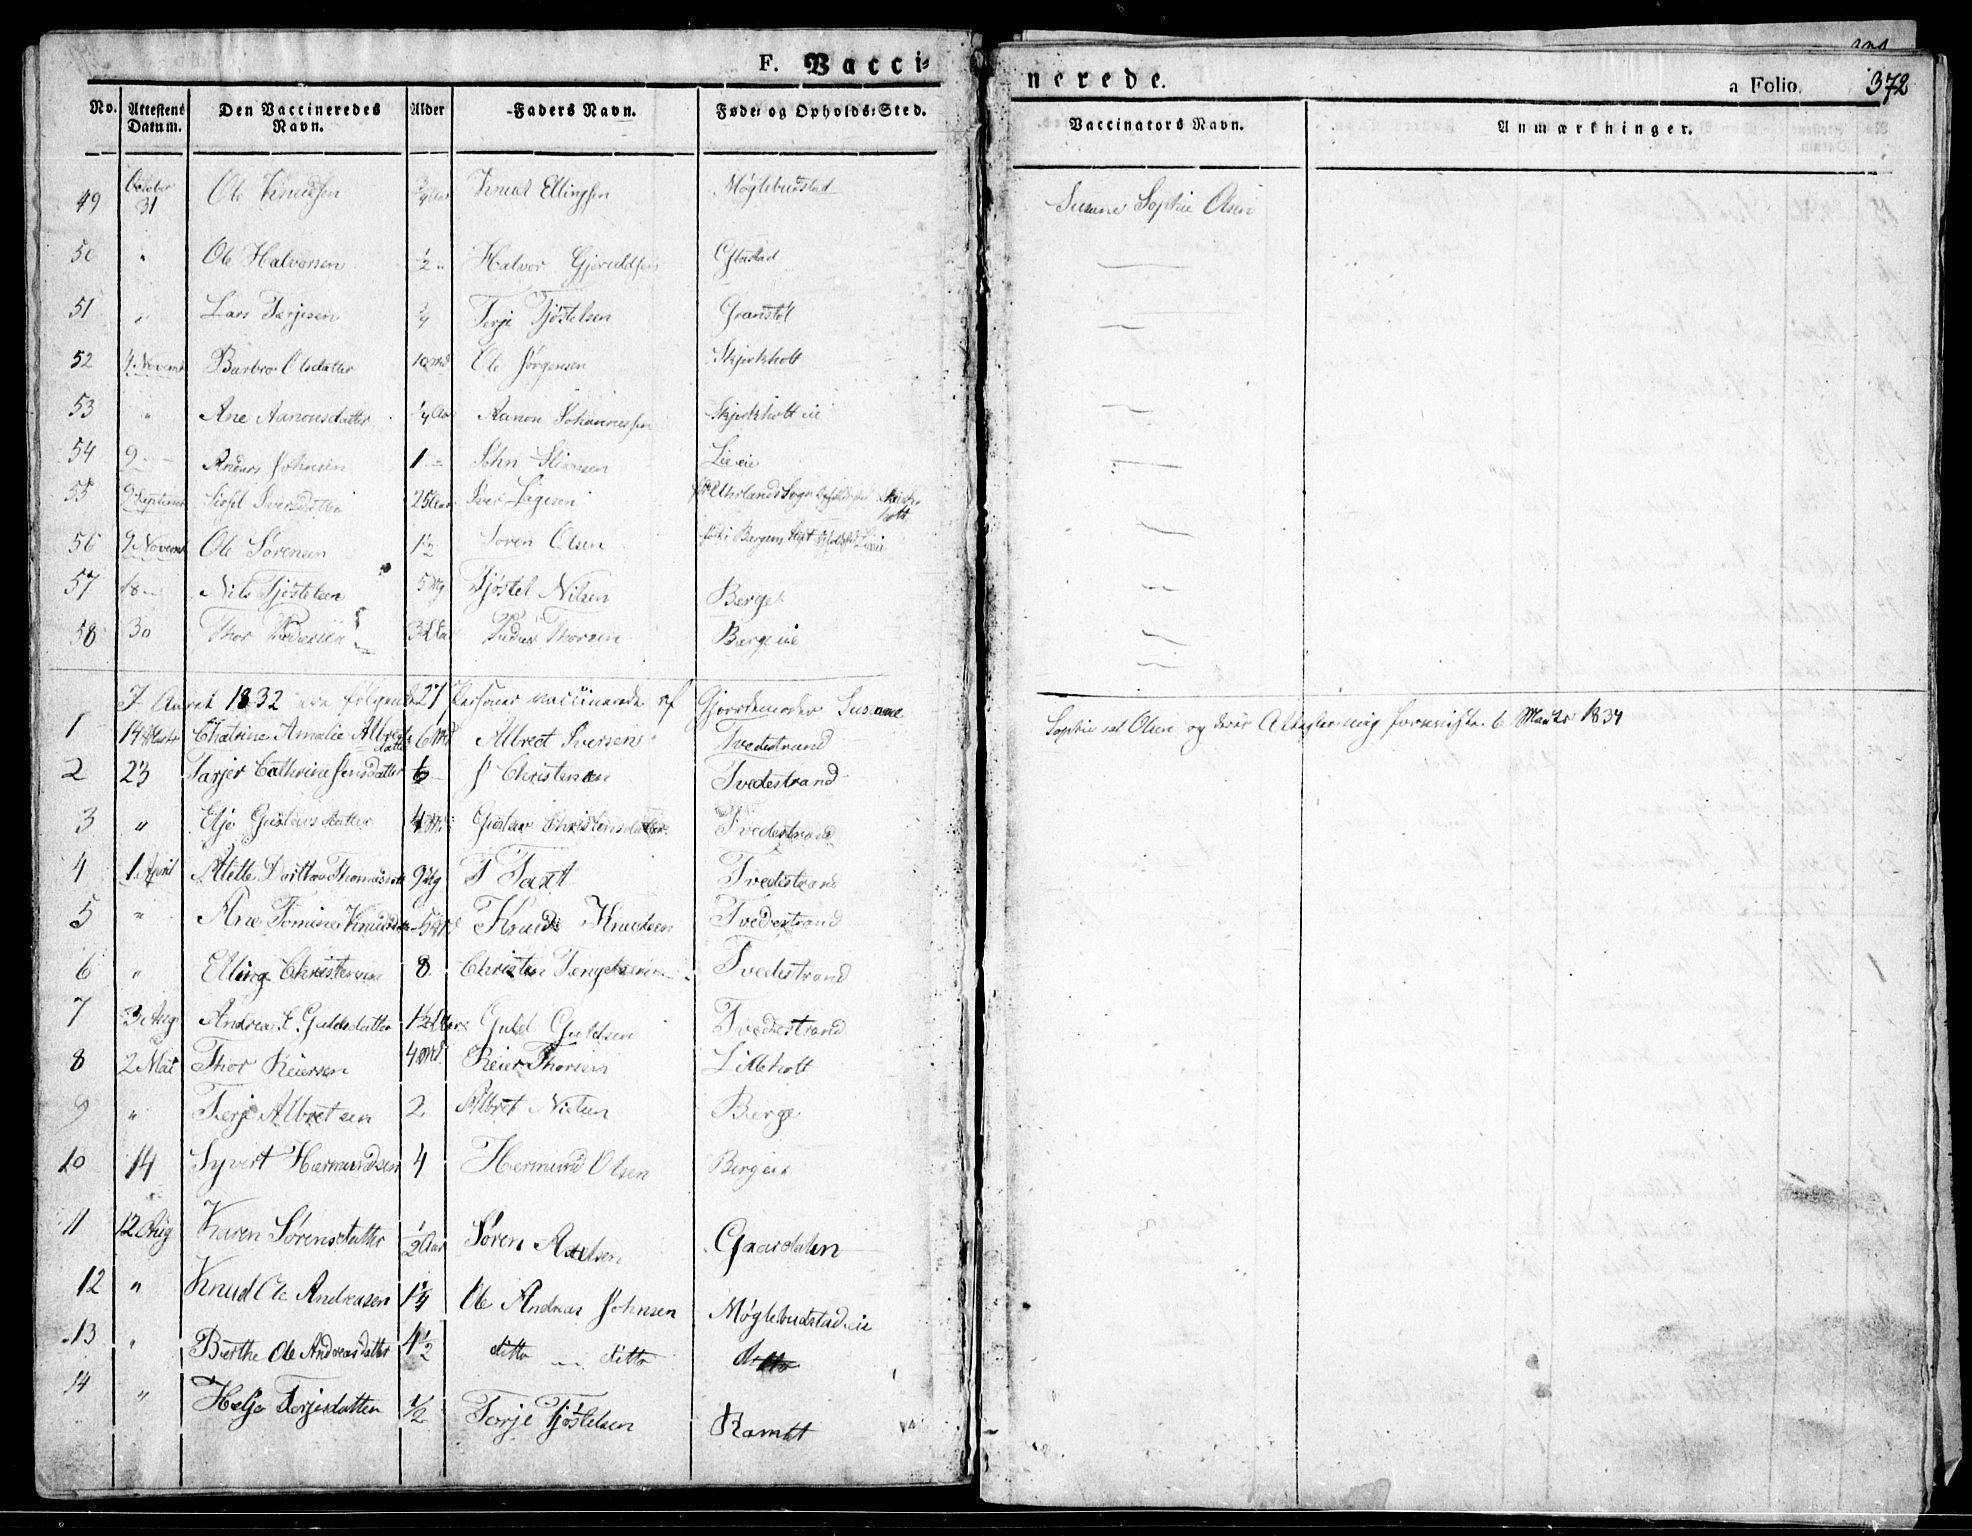 F. Vacci=
nerede.
a Folio. 372
No. Attestens Datum. Den Vaccineredes Navn. Alder Faders Navn. Føde- og Opholds-Sted. Vaccinators Navn. Anmærkninger.
49 October 31 Ole Knudsen Knud Ellingsen Møglebustad Susane Sophie Olsen
50 " Ole Halvorsen 1/2 " Halvor Gjeruldsen
51 " Lars Terjesen 3/4 Terje Tjøstelsen
52 4 Novemb Barbro Olsdatter 10 Md Ole Jørgensen Skjerkholt
53 " Ane Aanonsdatter 1/4 Aar Aanon Johannessen Skjerkholt eie
54 9 Anders Johnsen 1 John Lieeie
55 9 Septembr Iversdatter 25 Aar Iver Sogn
56 9 Novemb Ole Sørensen 1 1/2 Soren Olsen Bergens Stift
57 18 Nils Tjøstelsen 5 Tjøstel Nilsen Berge
58 30 Thor Pedersen Peder Thorsen Berge eie
I Aaret 1832 ere følgende 27 Personer vaccinerede af Gjordemoder Susane
Sophie Olsen og deres Attester mig foreviste 6 Marts 1834
1 14 Marts Chatrine Amalie Albretsdatter 6 Md Albrect Iversen Tvedestrand
2 23 Cathrine Jensdatter J Christensen Tvedestrand
3 " Elje Gustavsdatter 4 Md Gustav Christensdatter Tvedestrand
4 1 April Alette Dorthea Thomasdatter 9 Ug T Taxt Tvedestrand
5 " Ane Tomine Knudsdatter 5 Md Knud Knudsen Tvedestrand
6 " Elling Christensen 8 Christen Tengelsen Tvedestrand
7 3 Aug Andrea E. Guldsdatter 1 1/2 Aar Guld Guldsen Tvedestrand
8 2 Mai Thor Reiersen 4 Md Reier Thorsen Lilleholt
9 " Terje Albretsen 2 Albret Nielsen Berge
10 14 Syvert Hermundsen 4 Hermund Olsen Berg eie
11 12 Aug Karen Sørensdatter 1/2 Aar Søren Axelsen Gaardalen
12 " Knud Ole Andreasen 1 1/4 Ole Andreas Johnsen Møglebustad eie
13 " Berthe Ole Andreasdatter 4 1/2 ditto — ditto ditto
14 " Helje Terjesdatter 1/2 Terje Tjøstelsen